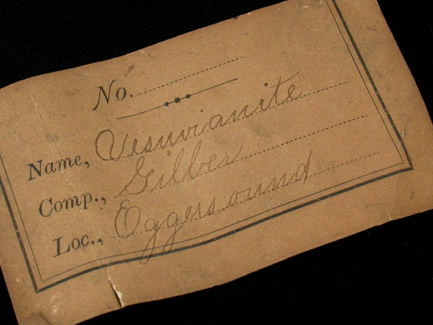 No.
Name, Vesuvianite
Comp., Gilber
Loc., Oggersound